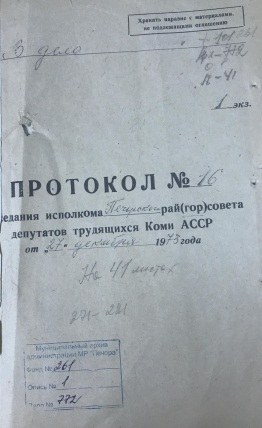 Хранить наравне с материалами,
не подлежащими оглашению
В дело
1 экз.
ПРОТОКОЛ № 16
едания исполкома рай(гор)совета
депутатов трудящихся Коми АССР
от 27 декабря 1973 года
На 41 листах
Муниципальный архив
Администрации МР "Печора"
Фонд № 261
Опись № 1
772